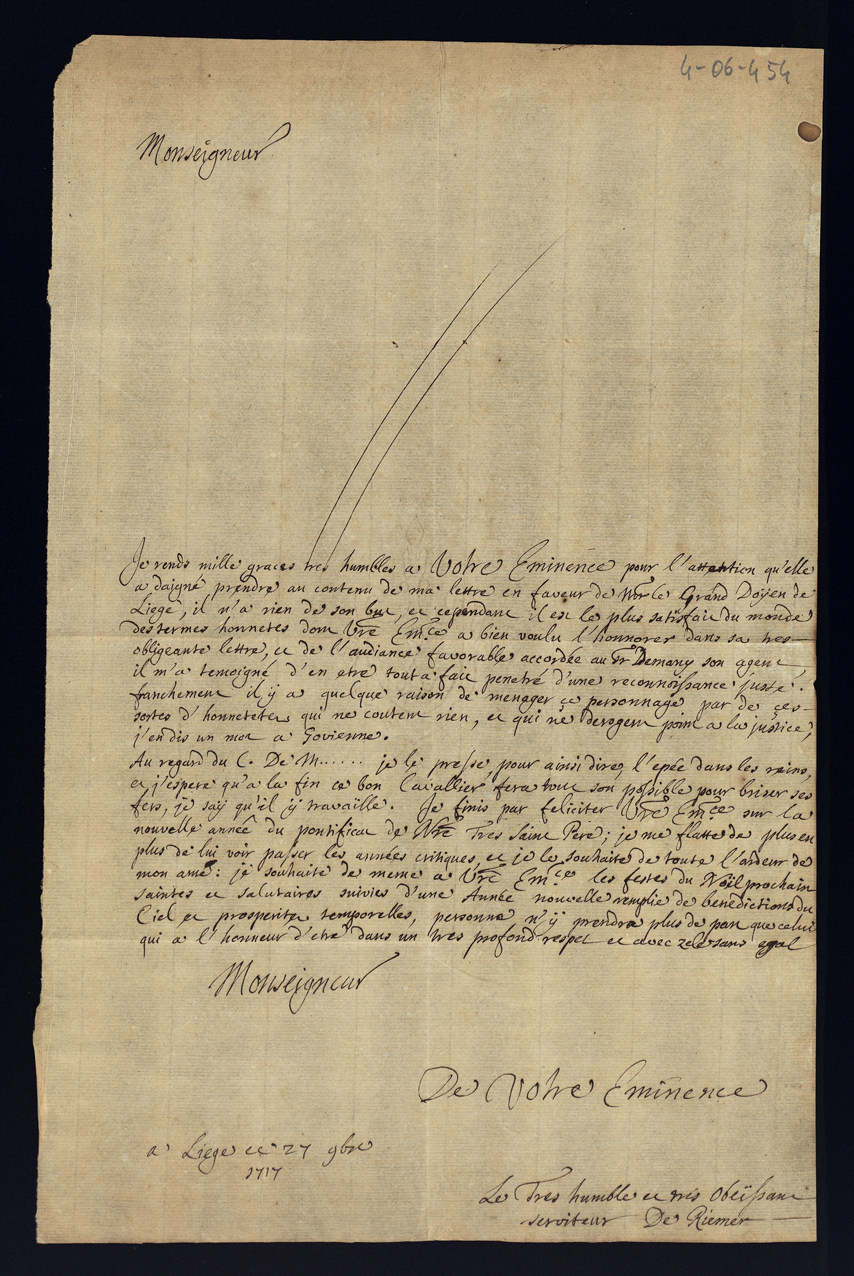 4-06-454
Monseigneur
Je rends mille graces tres humbles a Votre Eminence pour l'attention qu'elle
a daigné prendre au contenu de ma lettre en faveur de Mr le Grand Doÿen de
Liege, il n'a rien de son but, et cependant il est le plus satisfait du monde
des termes honnetes dont Vre Emce a bien voulu l'honnorer dans sa tres
obligeante lettre, et de l'audiance favorable accordée au Sr Demany son agent
il m'a temoigné d'en etre tout a fait penetré d'une reconnoissance juste.
franchement il ÿ a quelque raison de menager ce personnage par de ces
sortes d'honnetetez qui ne coutent rien, et qui ne derogent point a la justice,
j'en dis un mot a Govienne.
Au regard du C. De M...... je le presse pour ainsi dire, l'epée dans les reins,
et j'espere qu'a la fin ce bon Cavallier fera tout son possible pour briser ses
fers, je saÿ qu'il ÿ travaille. Je finis par feliciter Vre Emce sur la
nouvelle année du pontificat de Nre Tres Saint Pere; je me flatte de plus en
plus de lui voir passer les années critiques, et je le souhaite de toute l'ardeur de
mon ame: je souhaite de meme a Vre Emce les festes du Noël prochain
saintes et salutaires suivies d'une Année nouvelle remplie de benedictions du
Ciel et prosperitez temporelles, personne n'ÿ prendra plus de part que celui
qui a l'honneur d'etre dans un tres profond respect et avec zele sans egal
Monseigneur
De Votre Eminence
a Liege ce 27 9bre
1717
Le Tres humble et tres Obeïssant
serviteur De Riemer